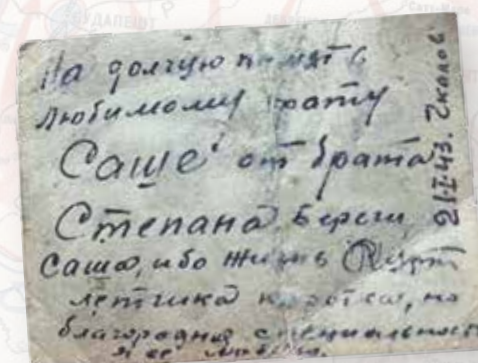 На долгую память
любимому брату
Саше от брата
Степана. Береги,
Саша, ибо жизнь
летчика коротка, но
благородна специальность
я её люблю.
21-I-43. Чкалов
БУДАПЕШТ